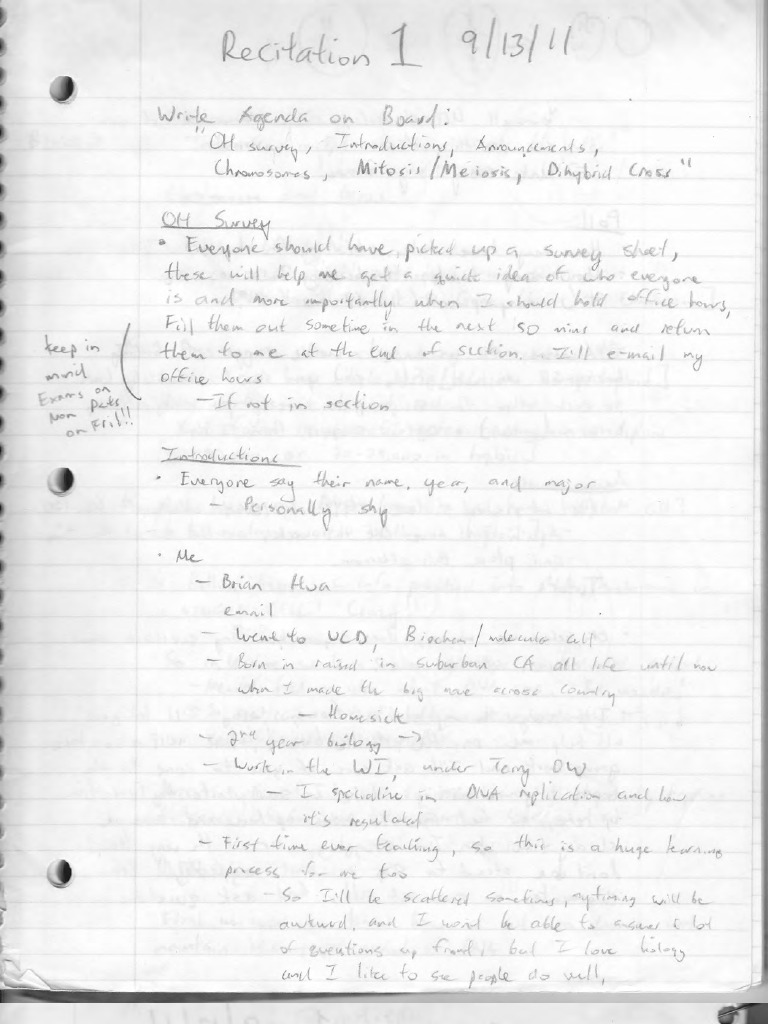 Recitation 1 9/13/11
Write Agenda on Board:
"OH survey, Introductions, Announcements,
Chromosomes, Mitosis/Meiosis, Dihybrid Cross"
OH Survey
• Everyone should have picked up a survey sheet,
these will help me get a quick idea of who everyone
is and more importantly when I should hold office hours,
Fill them out sometime in the next 50 mins and return
them to me at the end of section. I'll e-mail my
office hours
- If not in section
keep in
mind
Exams on
Non
on Fri!!
Introductions
• Everyone say their name, year, and major
- Personally shy
• Me
- Brian Hwa
email
- Went to UCD, Biochem/molecular cell
- Born in raised in suburban CA all life until now
when I made the big move across country
- Homesick
- 2nd year biology ->
- Work in the WI, under Terry OW
- I specialize in DNA replication and how
it's regulated
- First time ever teaching, so this is a huge learning
process for me too
- So I'll be scattered sometimes, my timing will be
awkward, and I won't be able to answer a lot
of questions up front, but I love biology
and I like to see people do well,